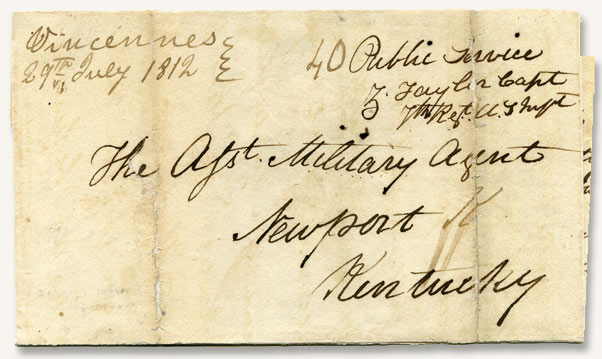 Vincennes
29th July 1812
40 Public Service
Z Taylor Capt
7th Regt. U.S Inft
The Asst. Military Agent
Newport K
Kentucky